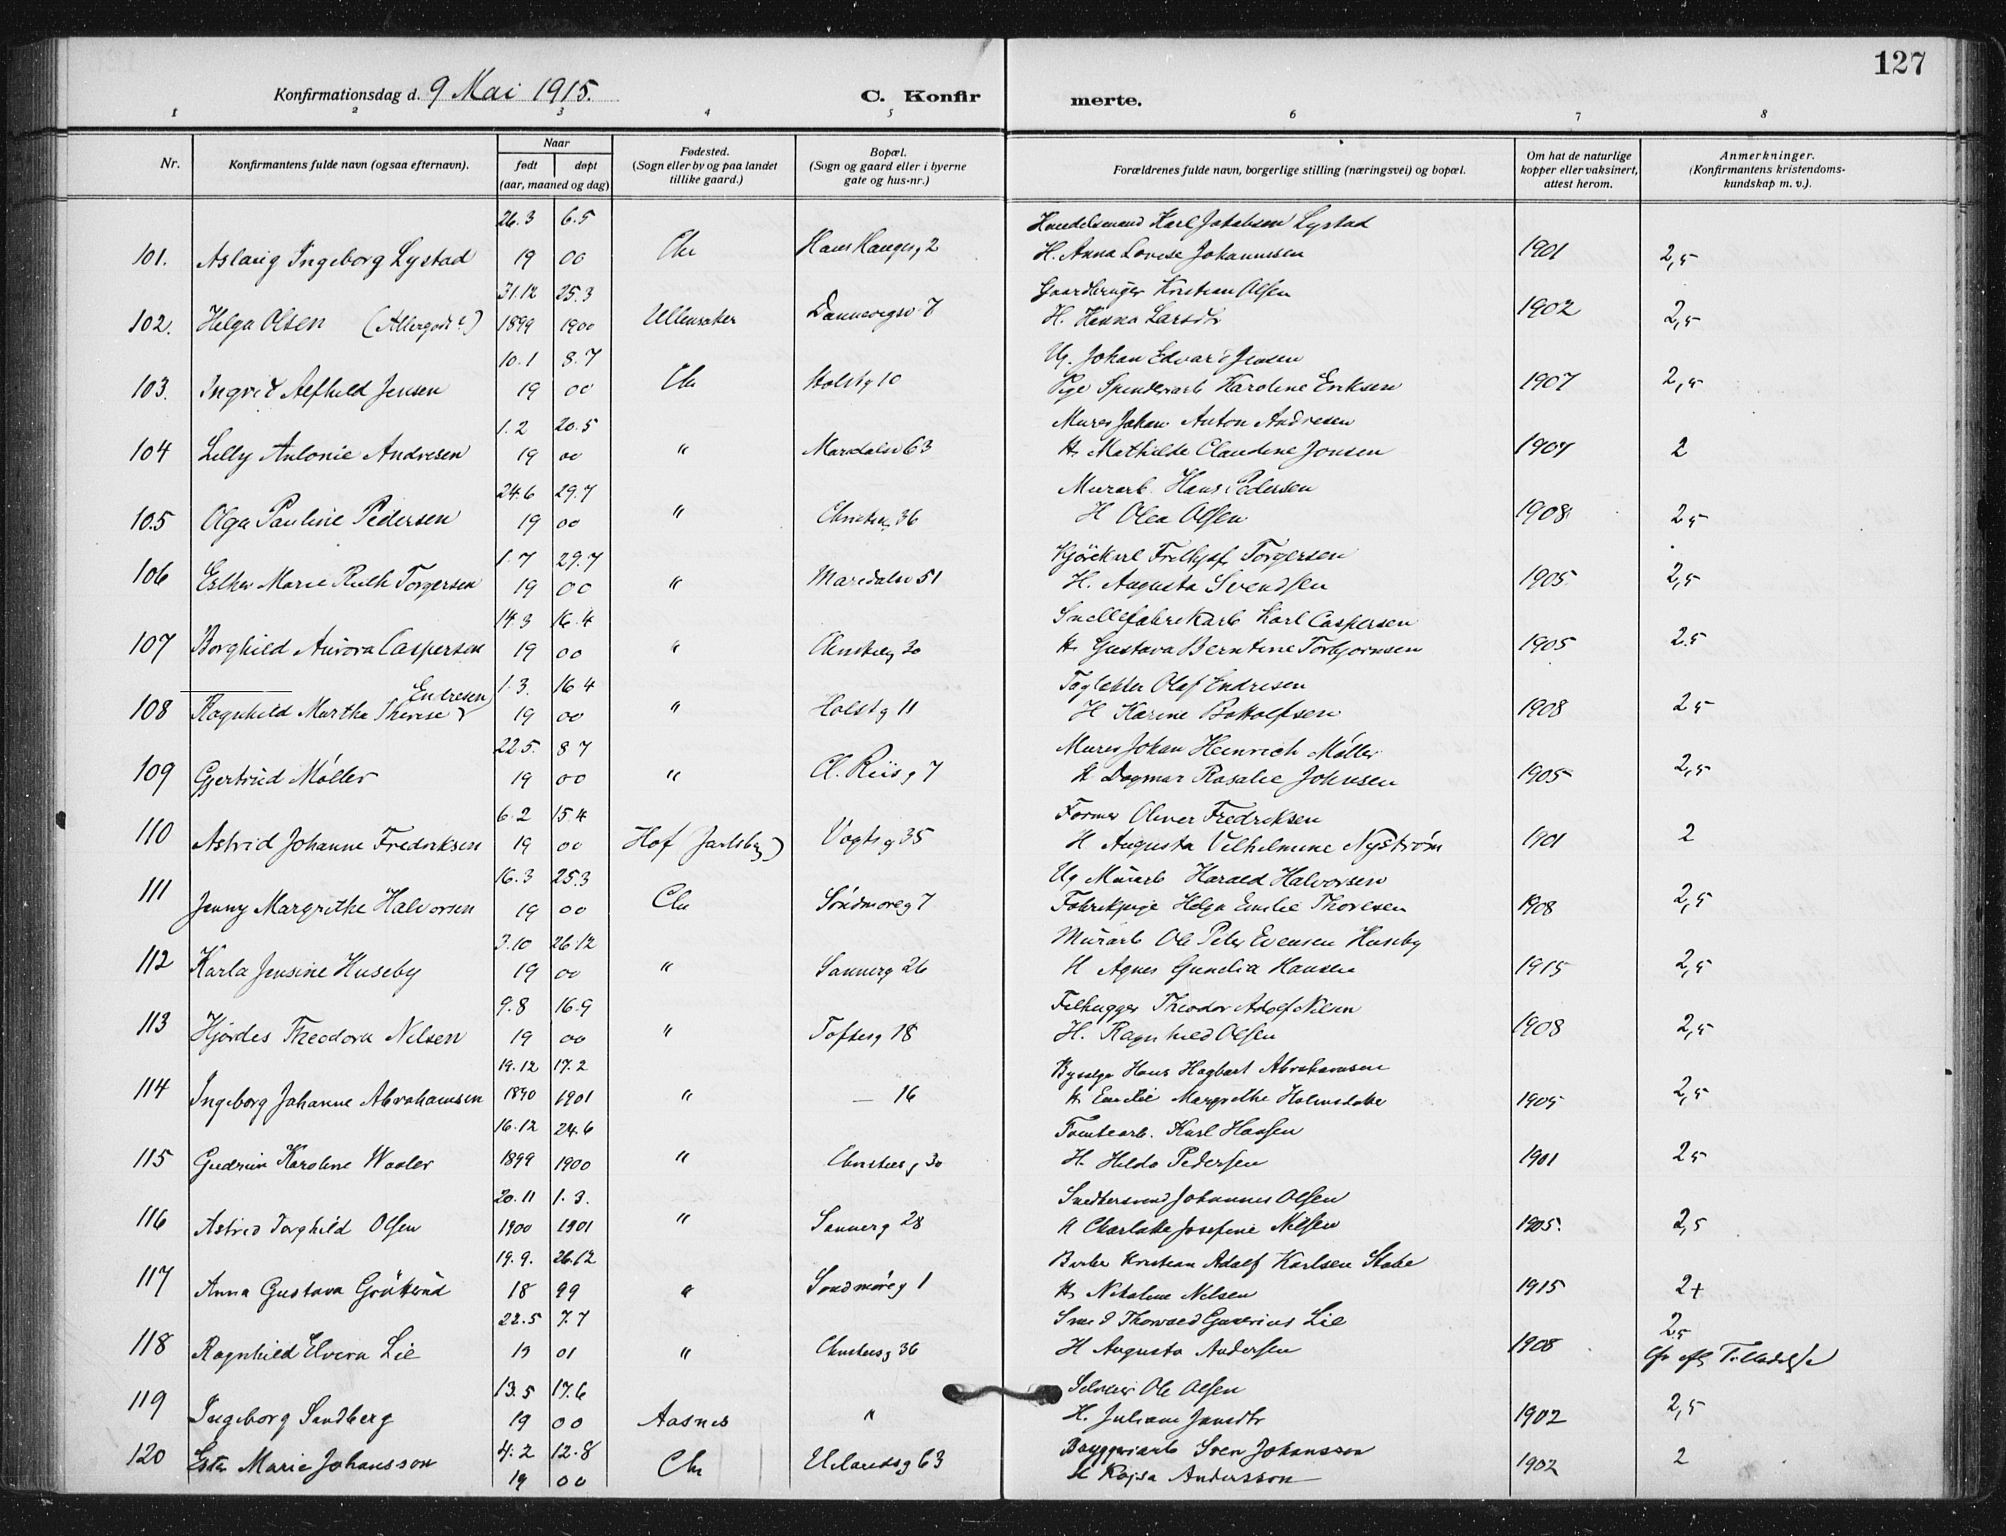 127
Konfirmationsdag d. 9 Mai 1915.
C. Konfirmerte.
1 2 3 4 5 6 7 8
Nr.
Konfirmantens fulde navn (ogsaa efternavn).
Naar
født døpt
(aar, maaned og dag)
Fødested.
(Sogn eller by og paa landet
tillike gaard.)
Bopæl.
(Sogn og gaard eller i byerne
gate og hus-nr.)
Forældrenes fulde navn, borgerlige stilling (næringsvei) og bopæl.
Om hat de naturlige
kopper eller vaksinert,
attest herom.
Anmerkninger.
(Konfirmantens kristendoms-
kundskap m. v.).
26.3 6.5 Handelsmand Karl Jakobsen Lystad
101. Aslaug Ingeborg Lystad 19 00 Chr Hans Hauges g 2 H. Anna Lovise Johannesen 1901 2,5
31.12 25.3 Gaardbruger Kristian Olsen
102. Helga Olsen 1899 1900 Ullensaker Dannevigsv 7 H. Hanna Larsdtr 1902 2,5
10.1 8.7 Ug. Johan Edvard Jensen
103. Ingrid Alfhild Jensen 19 00 Chr Holstg 10 Pige Spinderarb Karoline Eriksen 1907 2,5
1.2 20.5 Murer Johan Anton Andresen
104 Lilly Antonie Andresen 19 00 " Maridalsv 63 H. Mathilde Claudine Jonsen 1907 2
24.6 29.7 Murarb. Hans Pedersen
105 Olga Pauline Pedersen 19 00 " Christiesg 36 H Olea Olsen 1908 2 5
1.7 29.7 Kjørekarl Fridtjof Torgersen
106 Esther Marie Ruth Torgersen 19 00 " Maridalsv 51 H. Augusta Svendsen 1905 2,5
14.3 16.4 Snellefabrikarb Karl Caspersen
107 Borghild Aurora Caspersen 19 00 " Christiesg 30 H. Gustava Berntine Torbjørnsen 1905 2.5
Endresen 1.3. 16.4 Taglekter Olaf Endresen
108 Ragnhild Martha Therese 19 00 " Holstg 11 H Karine Bottolfsen 1908 2 5
22.5. 8 7 Murer Johan Heinrich Møller
109 Gjertrud Møller 19 00 " Cl. Riis g 7 H Dagmar Rosalie Johnsen 1905 2,5
6.2 15 4 Former Oliver Fredriksen
110 Astrid Johanne Fredriksen 19 00 Hof Jarlsberg) Vogtsg 35 H Augusta Vilhelmine Nystrøm 1901 2
16.3 25.3 Ug Murarb Harald Halvorsen
111 Jenny Margrethe Halvorsen 19 00 Chr Søndmøreg 7 Fabrikpige Helga Emilie Thoresen 1908 2,5
3.10 26.12 Murarb Ole Peter Evensen Huseby
112 Karla Jensine Huseby 19 00 " Sannerg 26 H Agnes Gunelia Hansen 1915 2,5
9.8 16.9 Filhugger Theodor Adolf Nilsen
113 Hjørdes Theodora Nilsen 19 00 " Toftesg 18 H. Ragnhild Olsen 1908 2,5
19.12 17.2 Hans Hagbart Abrahamsen
114 Ingeborg Johanne Abrahamsen 1890 1901 " — 16 H Emilie Margrethe 1905 2,5
16.12 24.6 Tomtearb. Karl Hansen
115 Gudrun Karoline Waaler 1899 1900 " Christiesg 30 H. Hilda Pedersen 1901 2 5
20.11 1.3. Snedkersvend Johannes Olsen
116 Astrid Torghild Olsen 1900 1901 " Sannerg 28 H Charlotte Josefine Nilsen 1905. 2,5
19.9. 26.12 Kristian Adolf Karlsen
117 Anna Gustava 18 99 " Søndmøreg 1 H. Nikoline Nilsen 1915 2+
22.5 7.7 Smed Thorvald Guverius Lie 2,5
118 Ragnhild Elvera Lie 19 01 " Christiesg 36 H Augusta Andersen 1908 Tilladelse
13.5 17.6 Ole Olsen
119 Ingeborg Sandberg 19 00 Aasnes " H. Juliane Jansdtr 1902 2,5
4.2 12.8 Bryggeriarb Sven Johansson
120 Ester Marie Johansson 19 00 Chr Uelandsg 63 H Kajsa Andersson 1902 2